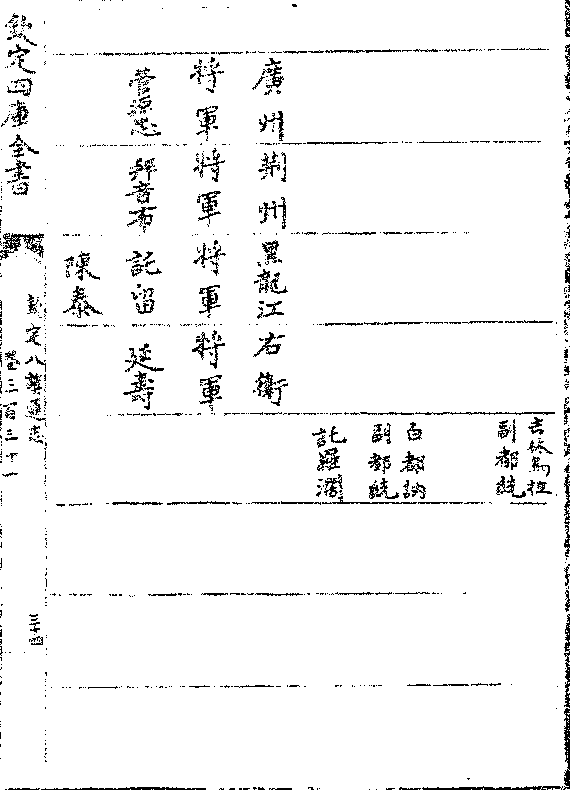 吉林烏拉
副都統
白都訥
副都統
託羅濶
廣州 荆州 黑龍江 右衛
將軍 將軍 將軍 將軍
管源忠 拜音布 託留 延壽
陳泰
欽定四庫全書
欽定八旗通志
卷三百三十一
三十四